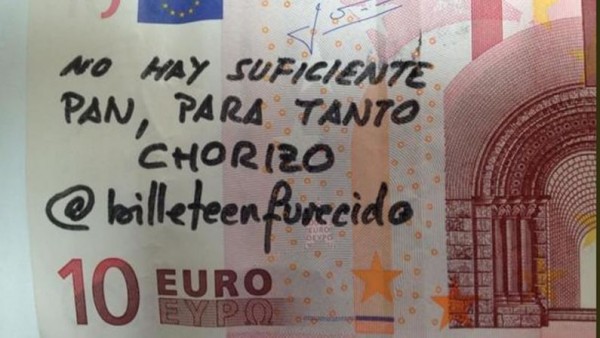 NO HAY SUFICIENTE
PAN, PARA TANTO
CHORIZO
@billeteenfurecido
10 EURO
ΕΥΡΩ